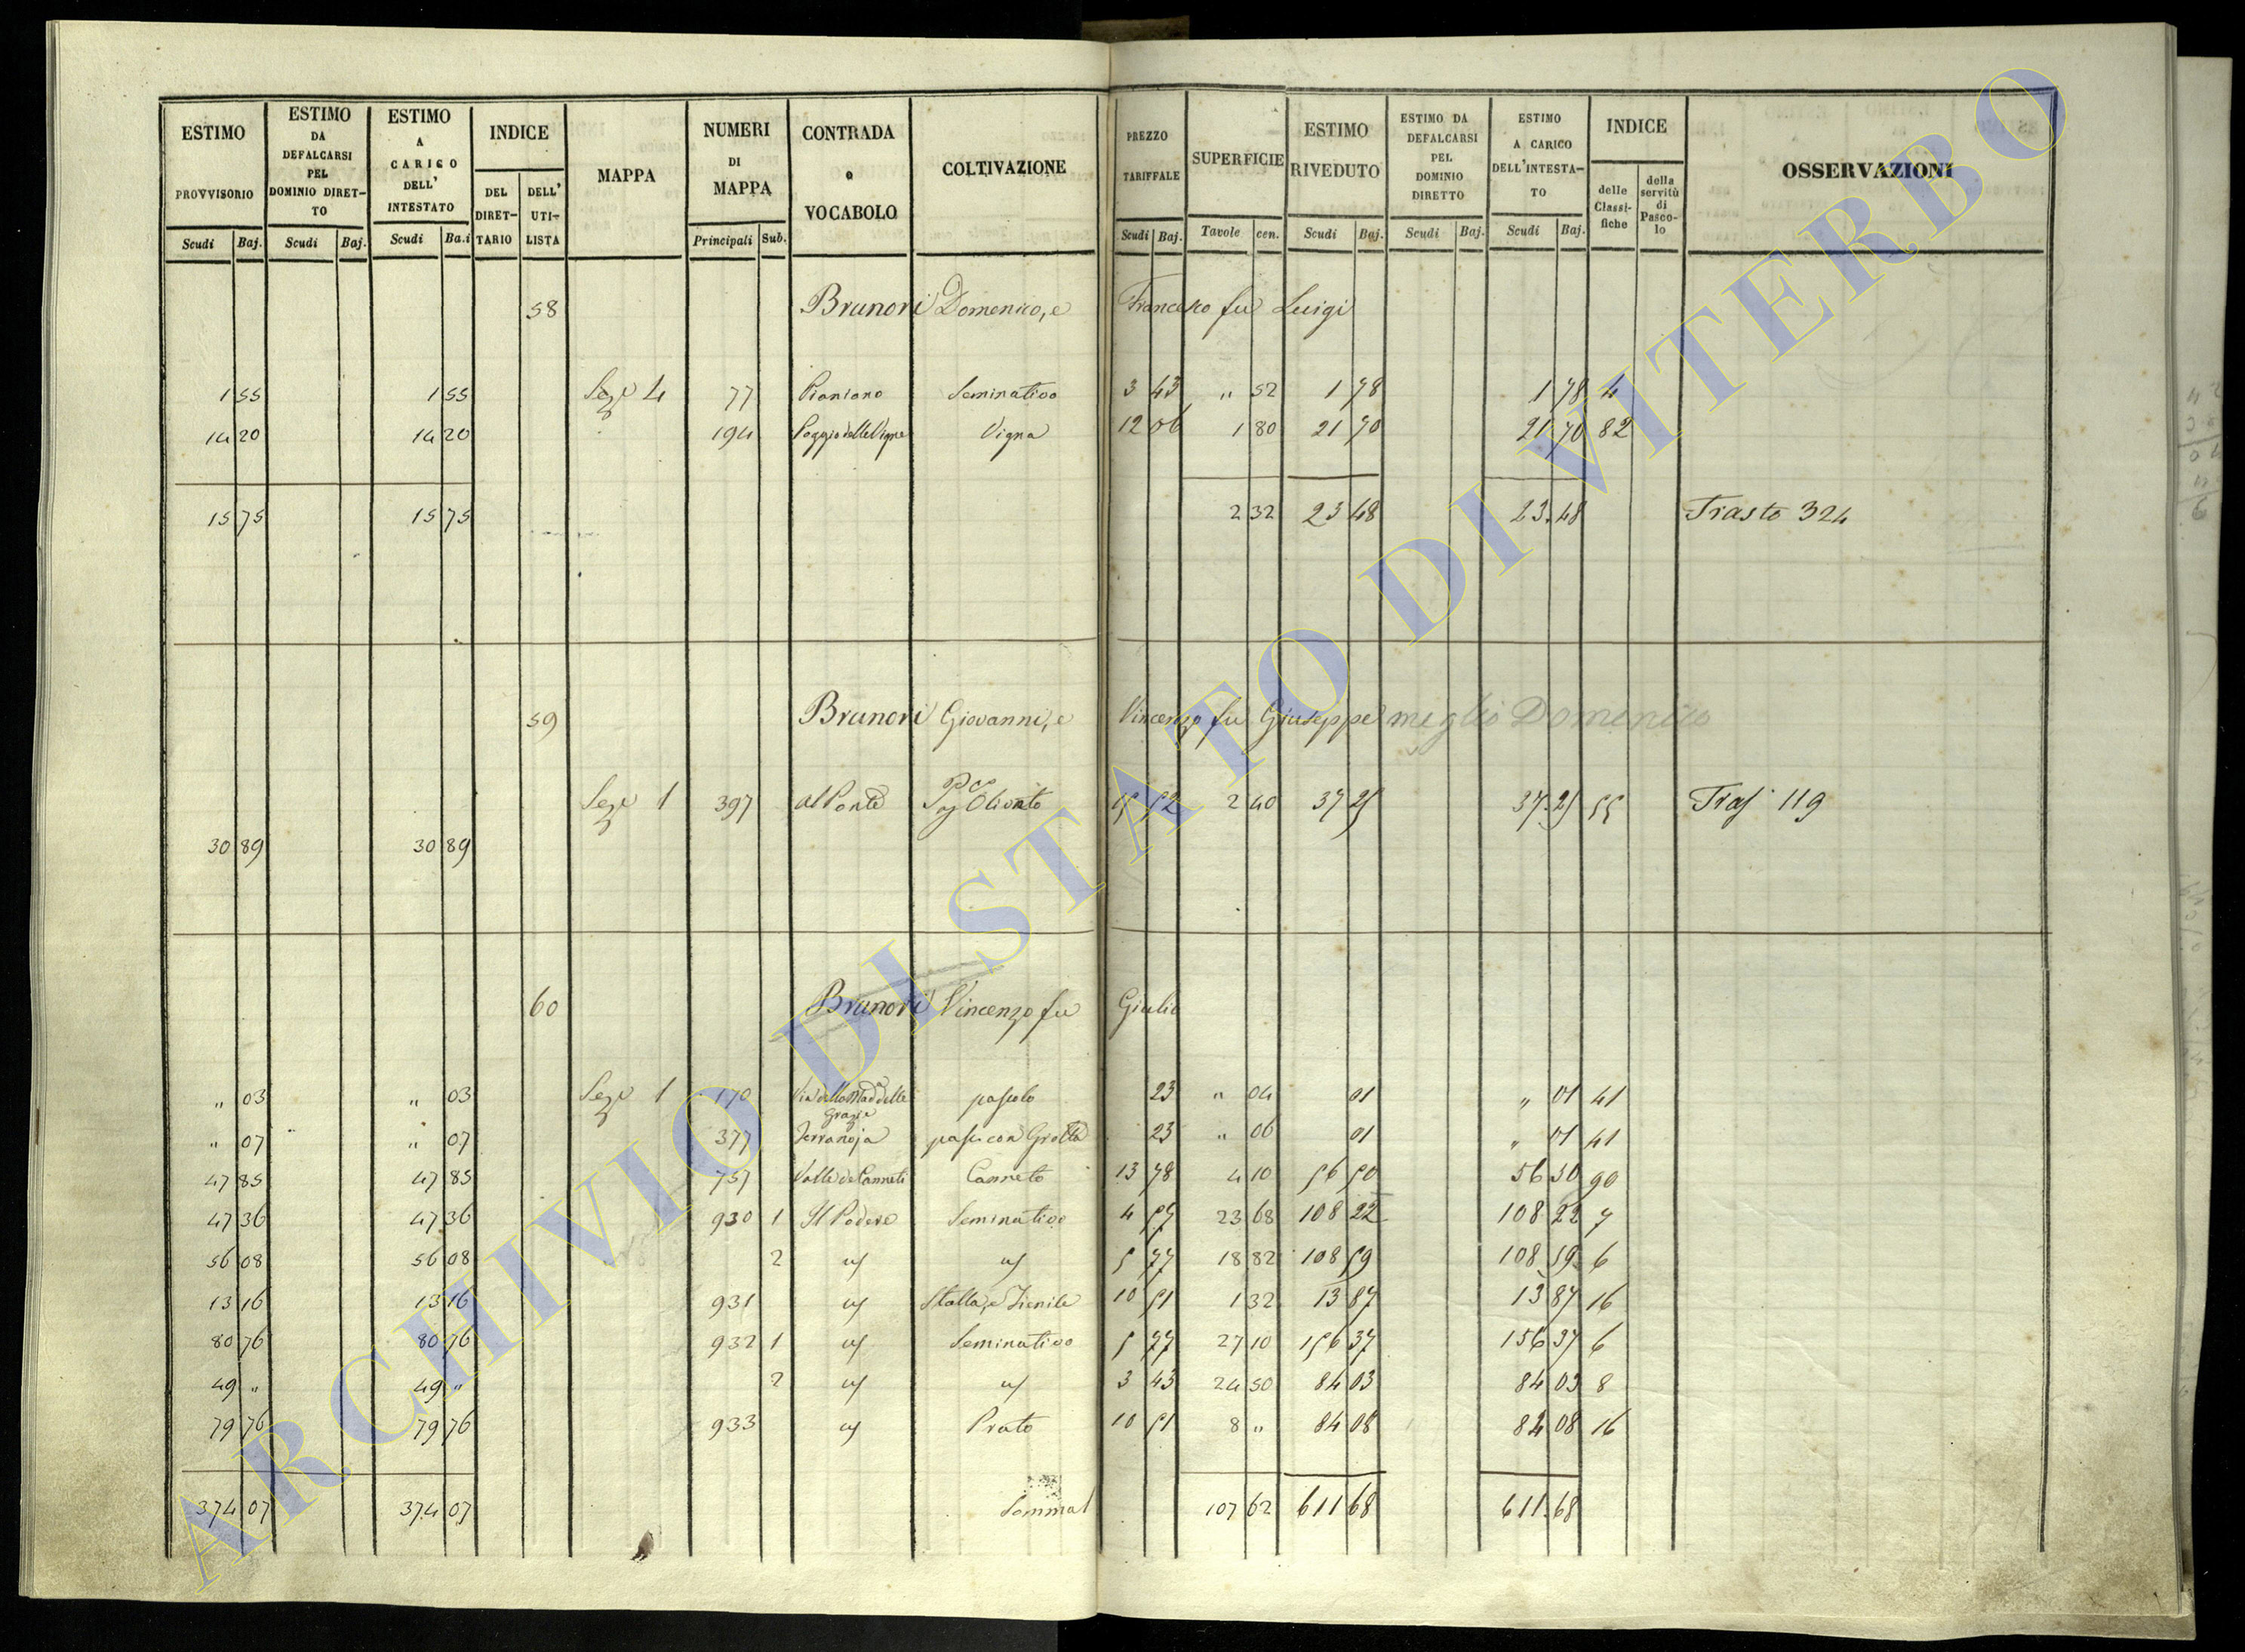 ESTIMO PROVVISORIO Scudi Baj.
ESTIMO DA DEFALCARSI PEL DOMINIO DIRET-TO Scudi Baj.
ESTIMO A CARICO DELL' INTESTATO Scudi Ba.i
INDICE DEL DIRET-TARIO DELL' UTI-LISTA
MAPPA
NUMERI DI MAPPA Principali Sub.
CONTRADA o VOCABOLO
COLTIVAZIONE
PREZZO TARIFFALE Scudi Baj.
SUPERFICIE Tavole cen.
ESTIMO RIVEDUTO Scudi Baj.
ESTIMO DA DEFALCARSI PEL DOMINIO DIRETTO Scudi Baj.
ESTIMO A CARICO DELL'INTESTA-TO Scudi Baj.
INDICE delle Classi-fiche della servitù di Pasco-lo
OSSERVAZIONI
58 Brunori Domenico, e Francesco fu Luigi
1 55 1 55 Sez.e 4 77 Pianiano Seminativo 3 43 " 52 1 78 1 78 4
14 20 14 20 194 Poggio delle Vigne Vigna 12 06 1 80 21 70 21 70 82
15 75 15 75 2 32 23 48 23.48 Trasto 324
59 Brunori Giovanni, e Vincenzo fu Giuseppe meglio Domenico
Sez.e 1 397 al Ponte Olivato 15 52 2 40 37 25 37.25 55 Tras 119
30 89 30 89
60 Brunori Vincenzo fu Giulio
" 03 " 03 Sez.e 1 170 Via della Mad.a delle Grazie pascolo 23 " 04 01 " 01 41
" 07 " 07 377 Terranoja pasc. con Grotta 23 " 06 01 " 01 41
47 85 47 85 757 Valle de Canneti Canneto 13 78 4 10 56 50 56 50 90
47 36 47 36 930 1 Il Podere Seminativo 4 57 23 68 108 22 108 22 7
56 08 56 08 2 " " 5 77 18 82 108 59 108 59 6
13 16 13 16 931 " Stalla, e Fienile 10 51 1 32 13 87 13 87 16
80 76 80 76 932 1 " Seminativo 5 77 27 10 156 37 156 37 6
49 " 49 " 2 " " 3 43 24 50 84 03 84 03 8
79 76 79 76 933 " Prato 10 51 8 " 84 08 84 08 16
374 07 374 07 Somma 107 62 611 68 611.68
ARCHIVIO DI STATO DI VITERBO